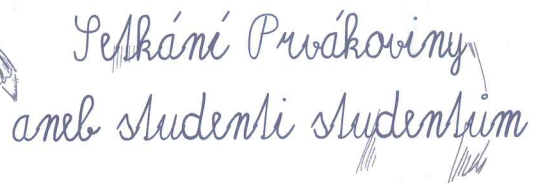 Setkání Prvákoviny
aneb studenti studentům